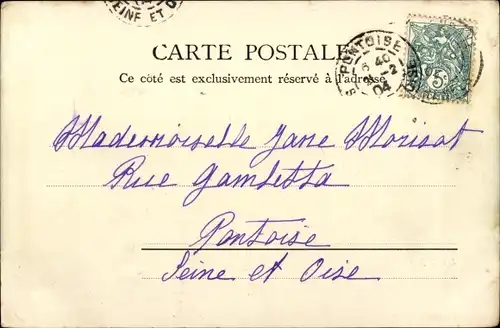 EINE ET O
CARTE POSTALE
Ce côté est exclusivement réservé à l'adresse
PONTOISE
6 40
2
04
5
Mademoiselle Jane Morisot
Rue Gambetta
Pontoise
Seine et Oise